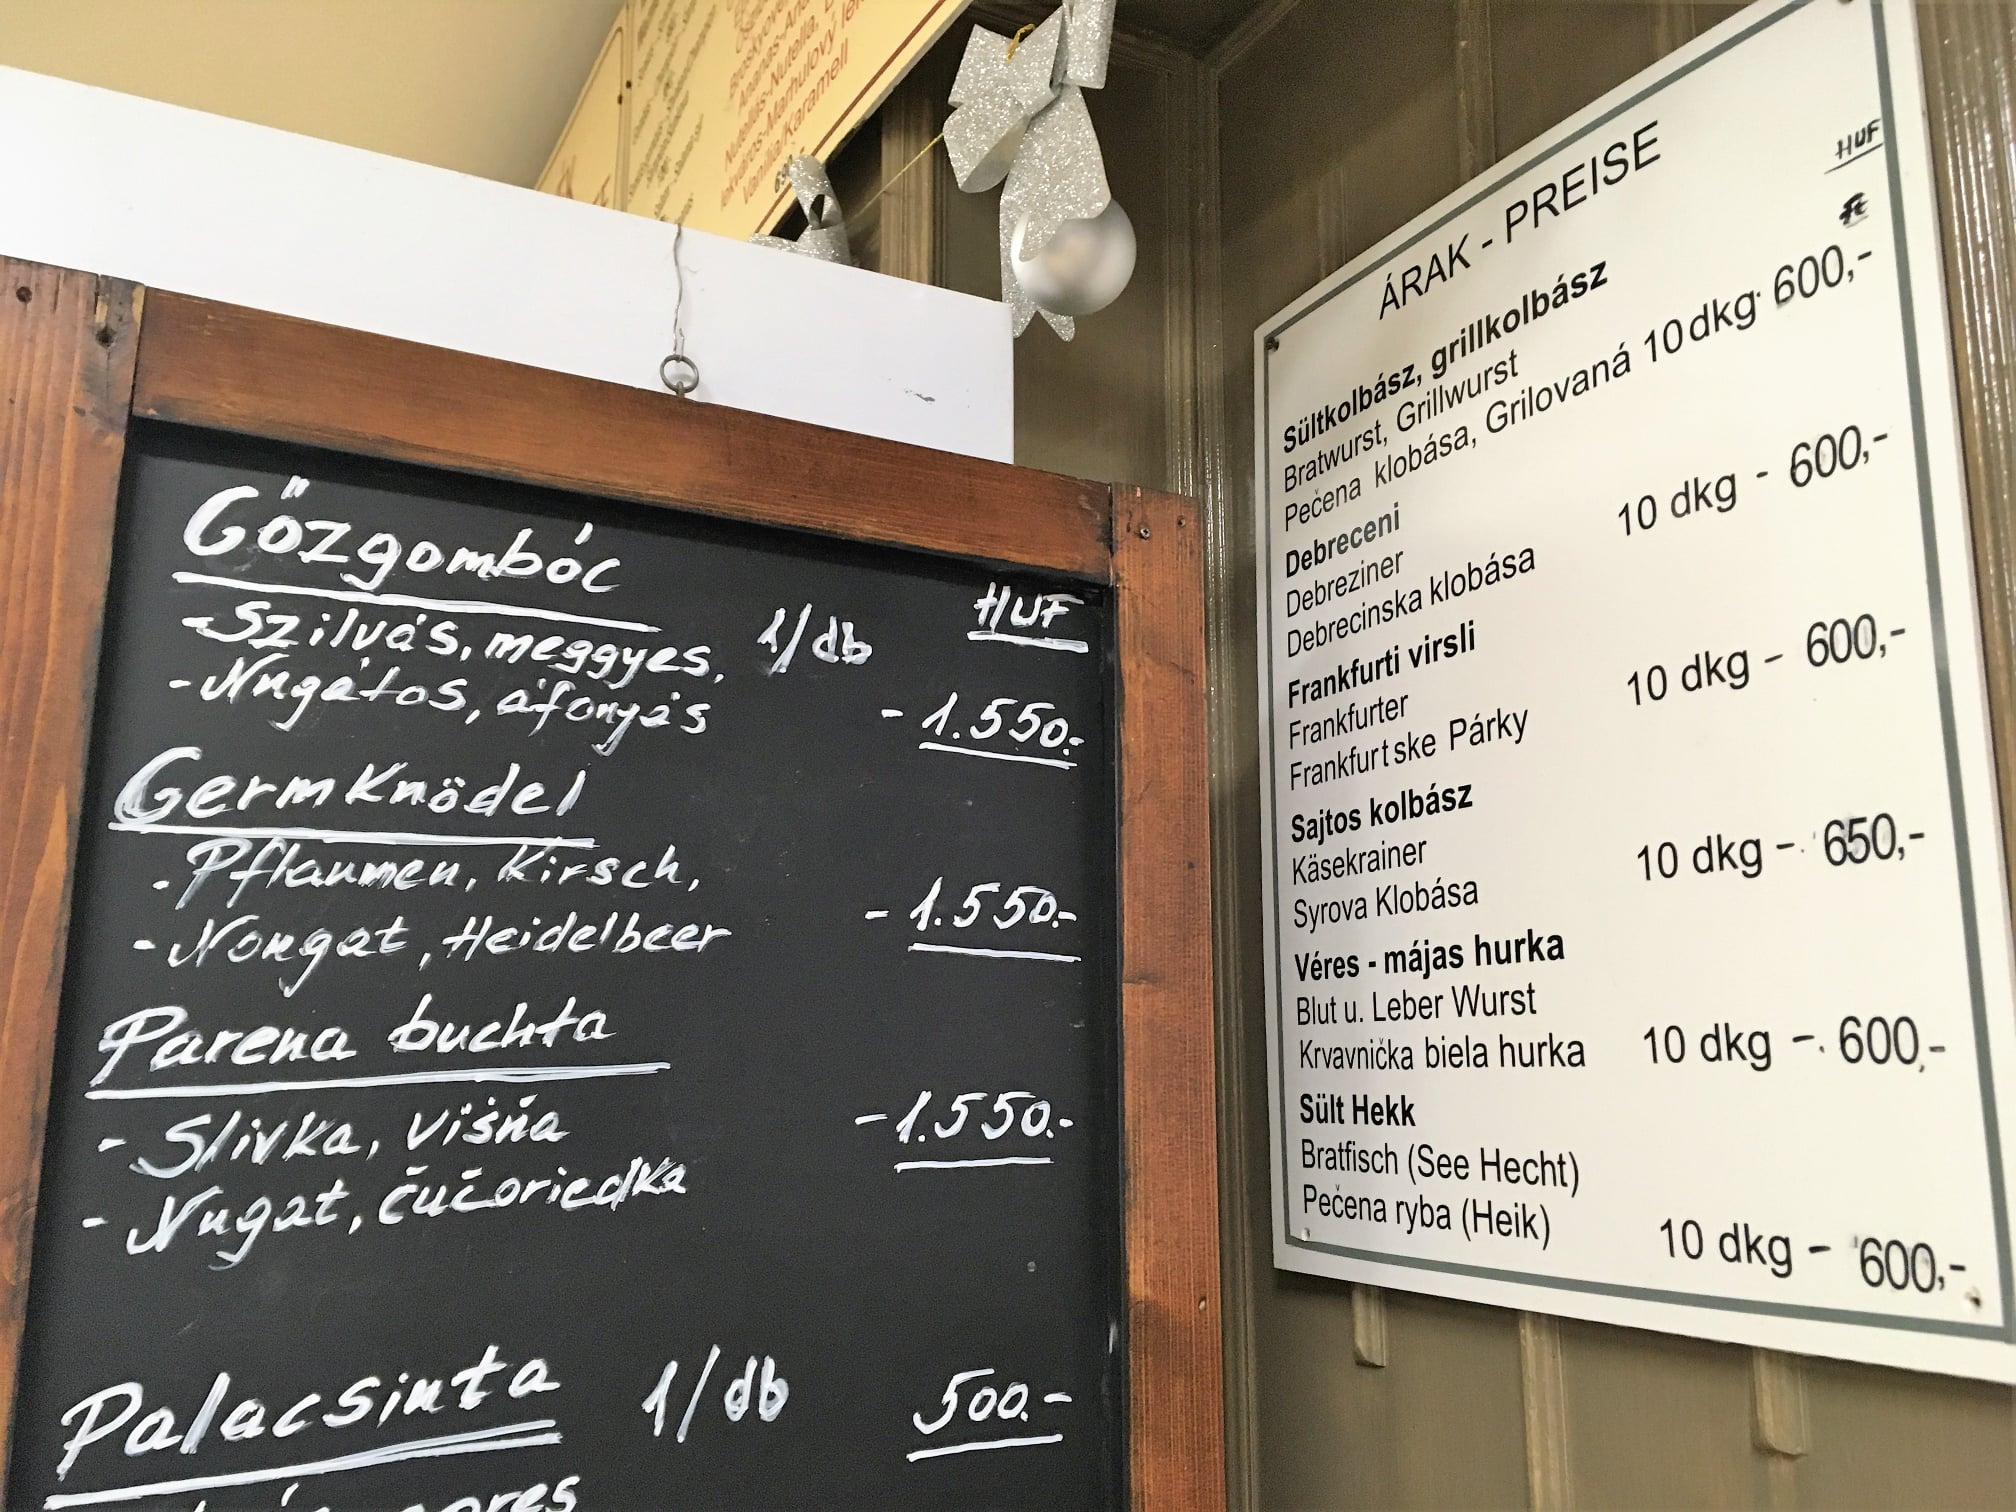 Nutellás-Nutella,
lekváros-Marhulový
Vanilia/Karamell
Gőzgombóc
HUF
-Szilvás, meggyes, 1/db
-Nugátos, áfonyás - 1.550.-
Germknödel
-Pflaumen, Kirsch,
- Nougat, Heidelbeer - 1.550.-
Parena buchta
- Slivka, višňa - 1.550.-
- Nugat, čučoriedka
Palacsinta 1/db 500.-
ÁRAK - PREISE
HUF
Sültkolbász, grillkolbász
Bratwurst, Grillwurst
Pečena klobása, Grilovaná 10dkg 600,-
Debreceni
Debreziner 10 dkg - 600,-
Debrecinska klobása
Frankfurti virsli
Frankfurter 10 dkg - 600,-
Frankfurtske Párky
Sajtos kolbász
Käsekrainer 10 dkg - 650,-
Syrova Klobása
Véres - májas hurka
Blut u. Leber Wurst
Krvavnička biela hurka 10 dkg - 600,-
Sült Hekk
Bratfisch (See Hecht)
Pečena ryba (Heik) 10 dkg - 600,-